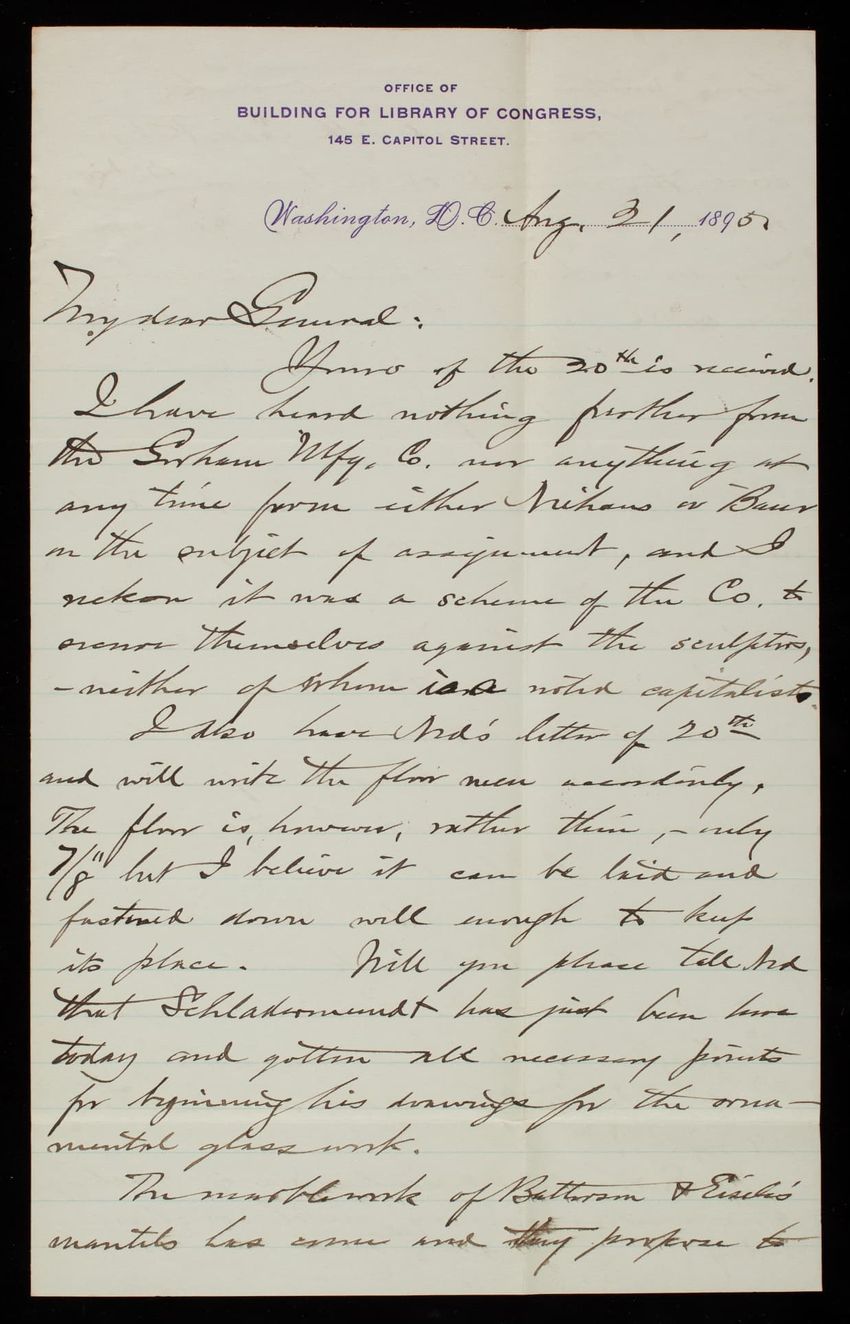 OFFICE OF
BUILDING FOR LIBRARY OF CONGRESS,
145 E. CAPITOL STREET.
Washington, D. C. Aug. 21, 1895
My dear General:
Yours of the 20th is received.
I have heard nothing further from
the Gorham Mfg. Co. nor anything at
any time from either Niehaus or Baur
on the subject of assignment, and I
reckon it was a scheme of the Co. to
secure themselves against the sculptors,
- neither of whom is a noted capitalist.
I also have Ned's letter of 20th
and will write the floor men accordingly.
The floor is, however, rather thin, - only
7/8" but I believe it can be laid and
fastened down well enough to keep
its place. Will you please tell Ned
that Schladermundt has just been here
today and gotten all necessary points
for beginning his drawings for the orna-
mental glass work.
The marble work of Batterson & Eisele's
mantels has come and they propose to